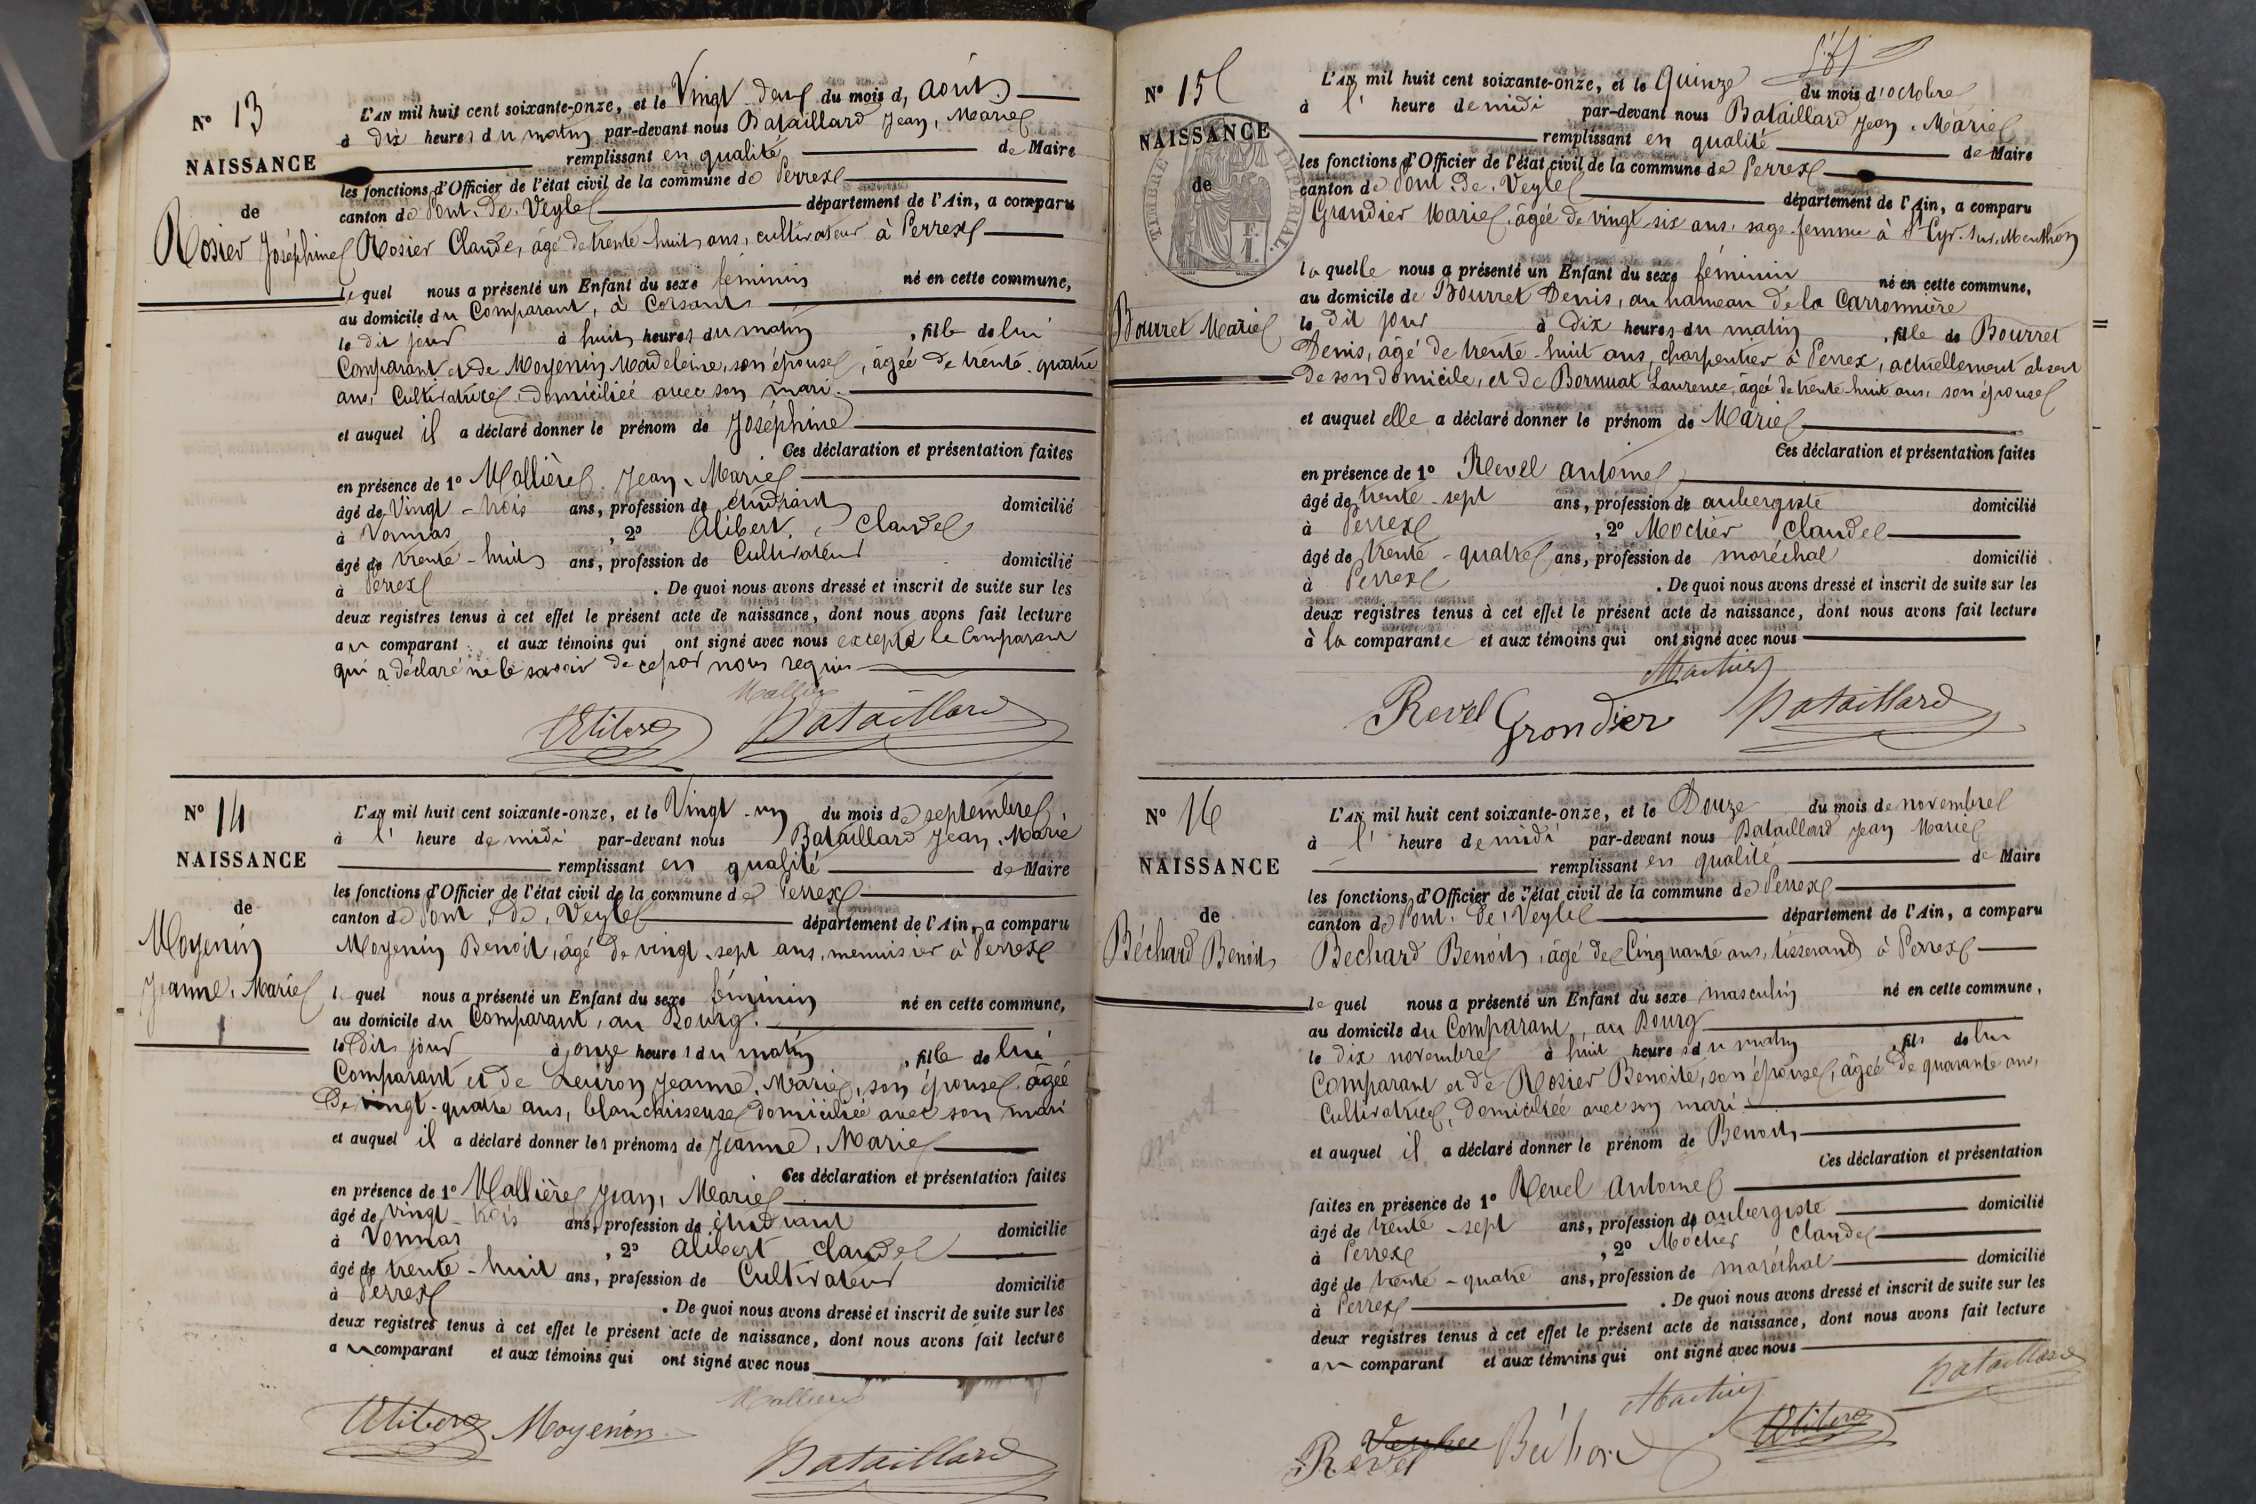 N° 13
NAISSANCE
de
Rosier Joséphine
L'AN mil huit cent soixante-onze, et le Vingt deux du mois d, août
à dix heures du matin par-devant nous Bataillard Jean, Marie
remplissant en qualité de Maire
les fonctions d'Officier de l'état civil de la commune de Perrex
canton de Pont. de. Veyle département de l'Ain, a comparu
Rosier Claude, âgé de trente-huit ans, cultivateur à Perrex
le quel nous a présenté un Enfant du sexe féminin né en cette commune,
au domicile du Comparant, à Corsant
le dit jour à huit heures du matin, fille de lui
Comparant et de Moyenin Madeleine, son épouse, âgée de trente. quatre
ans, Cultivatrice, domiciliée avec son mari.
et auquel il a déclaré donner le prénom de Joséphine
Ces déclaration et présentation faites
en présence de 1° Mallière. Jean. Marie
âgé de Vingt-trois ans, profession de étudiant domicilié
à Vonnas, 2° Alibert, Claude
âgé de trente-huit ans, profession de Cultivateur domicilié
à Perrex. De quoi nous avons dressé et inscrit de suite sur les
deux registres tenus à cet effet le présent acte de naissance, dont nous avons fait lecture
au comparant et aux témoins qui ont signé avec nous excepté le Comparant
qui a déclaré ne le savoir de ce par nous requis
Mallière
Alibert Bataillard
N° 14
NAISSANCE
de
Moyenin
Jeanne. Marie
L'AN mil huit cent soixante-onze, et le Vingt-un du mois de septembre
à l' heure de midi par-devant nous Bataillard Jean. Marie
remplissant en qualité de Maire
les fonctions d'Officier de l'état civil de la commune de Perrex
canton de Pont. de. Veyle département de l'Ain, a comparu
Moyenin Benoit, âgé de vingt-sept ans, menuisier à Perrex
le quel nous a présenté un Enfant du sexe féminin né en cette commune,
au domicile du Comparant, au Bourg.
le dit jour à onze heures du matin, fille de lui
Comparant et de Leuron Jeanne. Marie, son épouse, âgée
De vingt-quatre ans, blanchisseuse domiciliée avec son mari
et auquel il a déclaré donner les prénoms de Jeanne. Marie
Ces déclaration et présentation faites
en présence de 1° Mallière Jean, Marie
âgé de vingt-trois ans, profession de étudiant domicilié
à Vonnas, 2° Alibert Claude
âgé de trente-huit ans, profession de Cultivateur domicilié
à Perrex. De quoi nous avons dressé et inscrit de suite sur les
deux registres tenus à cet effet le présent acte de naissance, dont nous avons fait lecture
au comparant et aux témoins qui ont signé avec nous
Mallière
Alibert Moyenin
Bataillard
N° 15
NAISSANCE
de
TIMBRE IMPÉRIAL.
Bourret Marie
L'AN mil huit cent soixante-onze, et le quinze du mois d'octobre
à l' heure de midi par-devant nous Bataillard Jean. Marie
remplissant en qualité de Maire
les fonctions d'Officier de l'état civil de la commune de Perrex
canton de Pont. de. Veyle département de l'Ain, a comparu
Grandier Marie, âgée de vingt-six ans, sage-femme à St Cyr. sur. Menthon
la quelle nous a présenté un Enfant du sexe féminin né en cette commune,
au domicile de Bourret Denis, au hameau de la Carronnière
le dit jour à dix heures du matin, fille de Bourret
Denis, âgé de trente-huit ans, charpentier à Perrex, actuellement absent
de son domicile, et de Bornuat Laurence, âgée de trente-huit ans, son épouse
et auquel elle a déclaré donner le prénom de Marie
Ces déclaration et présentation faites
en présence de 1° Revel antoine
âgé de trente-sept ans, profession de aubergiste domicilié
à Perrex, 2° Mochier Claude
âgé de trente-quatre ans, profession de maréchal domicilié
à Perrex. De quoi nous avons dressé et inscrit de suite sur les
deux registres tenus à cet effet le présent acte de naissance, dont nous avons fait lecture
à la comparante et aux témoins qui ont signé avec nous
Revel Grondier Bataillard
N° 16
NAISSANCE
de
Béchard Benoit
L'AN mil huit cent soixante-onze, et le Douze du mois de novembre
à l' heure de midi par-devant nous Bataillard Jean Marie
remplissant en qualité de Maire
les fonctions d'Officier de l'état civil de la commune de Perrex
canton de Pont. de. Veyle département de l'Ain, a comparu
Bechard Benoit, âgé de Cinquante ans, tisserand à Perrex
le quel nous a présenté un Enfant du sexe masculin né en cette commune,
au domicile du Comparant, au Bourg
le dix novembre à huit heures du matin, fils de lui
Comparant et de Rosier Benoite, son épouse, âgée de quarante ans,
Cultivatrice, domiciliée avec son mari
et auquel il a déclaré donner le prénom de Benoit
Ces déclaration et présentation
faites en présence de 1° Revel antoine
âgé de trente-sept ans, profession de aubergiste domicilié
à Perrex, 2° Mochier Claude
âgé de trente-quatre ans, profession de maréchal domicilié
à Perrex. De quoi nous avons dressé et inscrit de suite sur les
deux registres tenus à cet effet le présent acte de naissance, dont nous avons fait lecture
au comparant et aux témoins qui ont signé avec nous
Bataillard
Revel Béchard Alibert